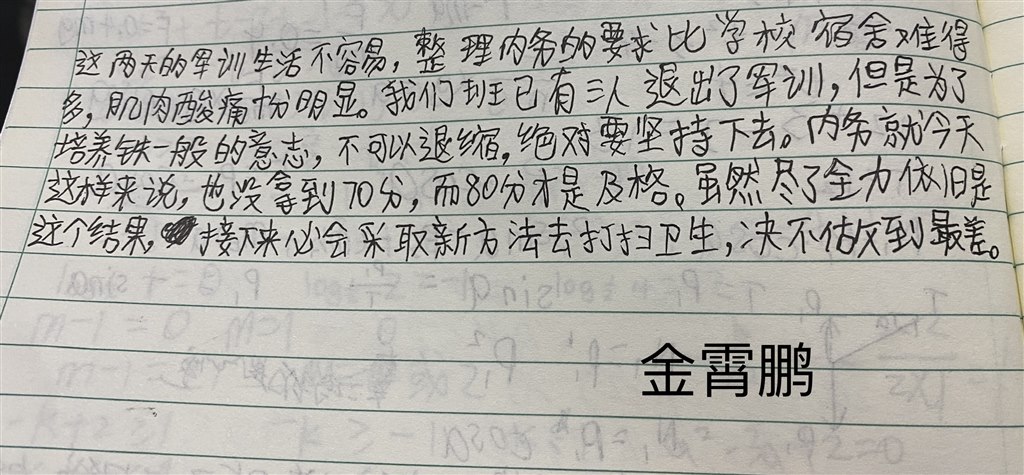 这两天的军训生活不容易，整理内务的要求比学校宿舍难得
多，肌肉酸痛十份明显。我们班已有三人退出了军训，但是为了
培养铁一般的意志，不可以退缩，绝对要坚持下去。内务就今天
这样来说，也没拿到70分，而80分才是及格。虽然尽了全力依旧是
这个结果，接下来必会采取新方法去打扫卫生，决不做到最差。
金霄鹏